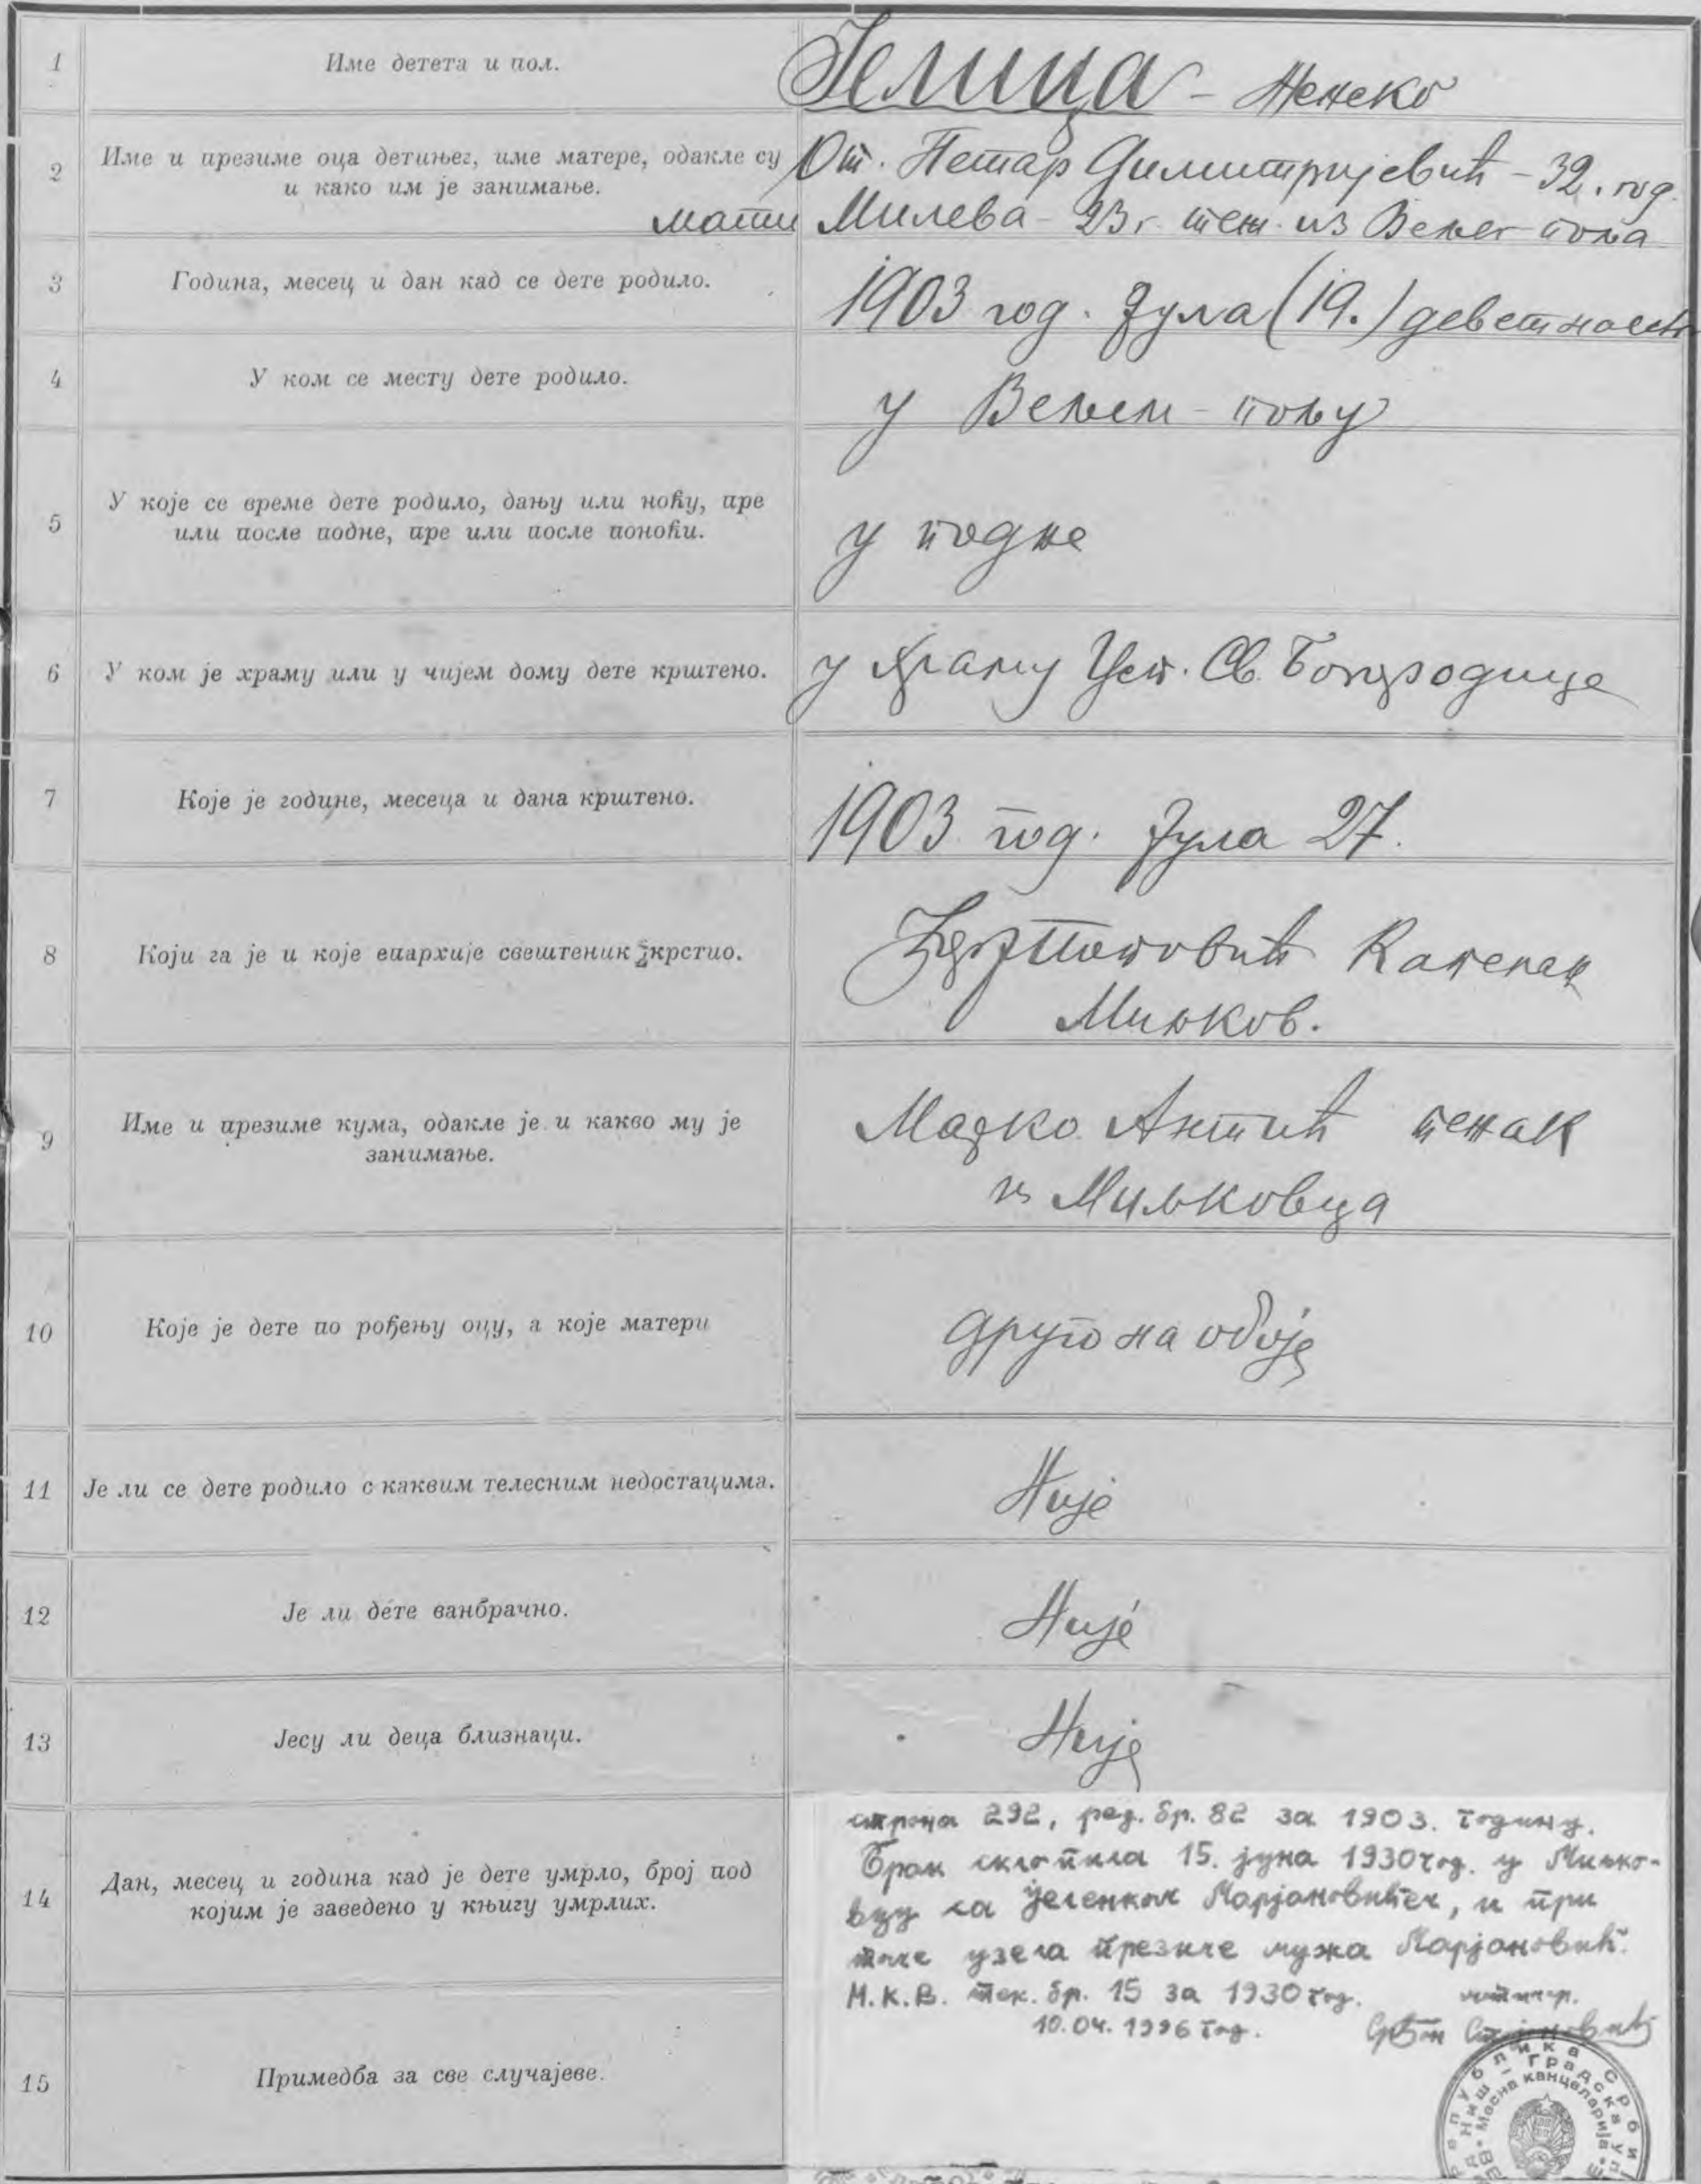 1
Име детета и пол.
Јелица - Женско
2
Име и презиме оца детињег, име матере, одакле су
и како им је занимање.
От. Петар Димитријевић - 32. год.
мати Милева - 23 г. теж. из Вељег поља
3
Година, месец и дан кад се дете родило.
1903 год. Јула (19.) деветнаест
4
У ком се месту дете родило.
у Вељем - пољу
5
У које се време дете родило, дању или ноћу, пре
или после подне, пре или после поноћи.
у подне
6
У ком је храму или у чијем дому дете крштено.
у храму Усп. Св. Богородице
7
Које је године, месеца и дана крштено.
1903 год. Јула 27.
8
Који га је и које епархије свештеник крстио.
Капелан
Миљков.
9
Име и презиме кума, одакле је и какво му је
занимање.
Марко Антић тежак
из Миљковца
10
Које је дете по рођењу оцу, а које матери
друго на обоје
11
Је ли се дете родило с каквим телесним недостацима.
Није
12
Је ли дете ванбрачно.
Није
13
Јесу ли деца близнаци.
Није
14
Дан, месец и година кад је дете умрло, број под
којим је заведено у књигу умрлих.
страна 292, ред. бр. 82 за 1903. годину.
Брак склопила 15. јуна 1930 год. у Миљко-
вцу са Јеленком Марјановићем, и при
томе узела презиме мужа Марјановић.
М.К.В. тек. бр. 15 за 1930 год. матичар.
10.04.1996 год.
15
Примедба за све случајеве.
Република Срби
Ниш - Градска уп
Месна канцеларија